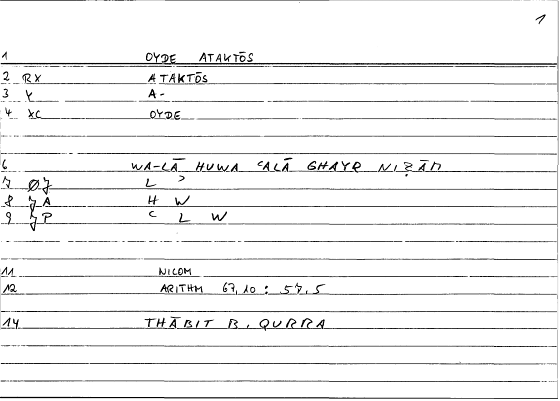 1
1 OYDE ATAKTŌS
2 RX ATAKTŌS
3 Y A-
4 XC OYDE
6 WA-LĀ HUWA ʿALĀ GHAYR NIẒĀM
7 ØJ L ʾ
8 JA H W
9 JP ʿ L W
11 NICOM
12 ARITHM 67,10 : 57,5
14 THĀBIT B. QURRA